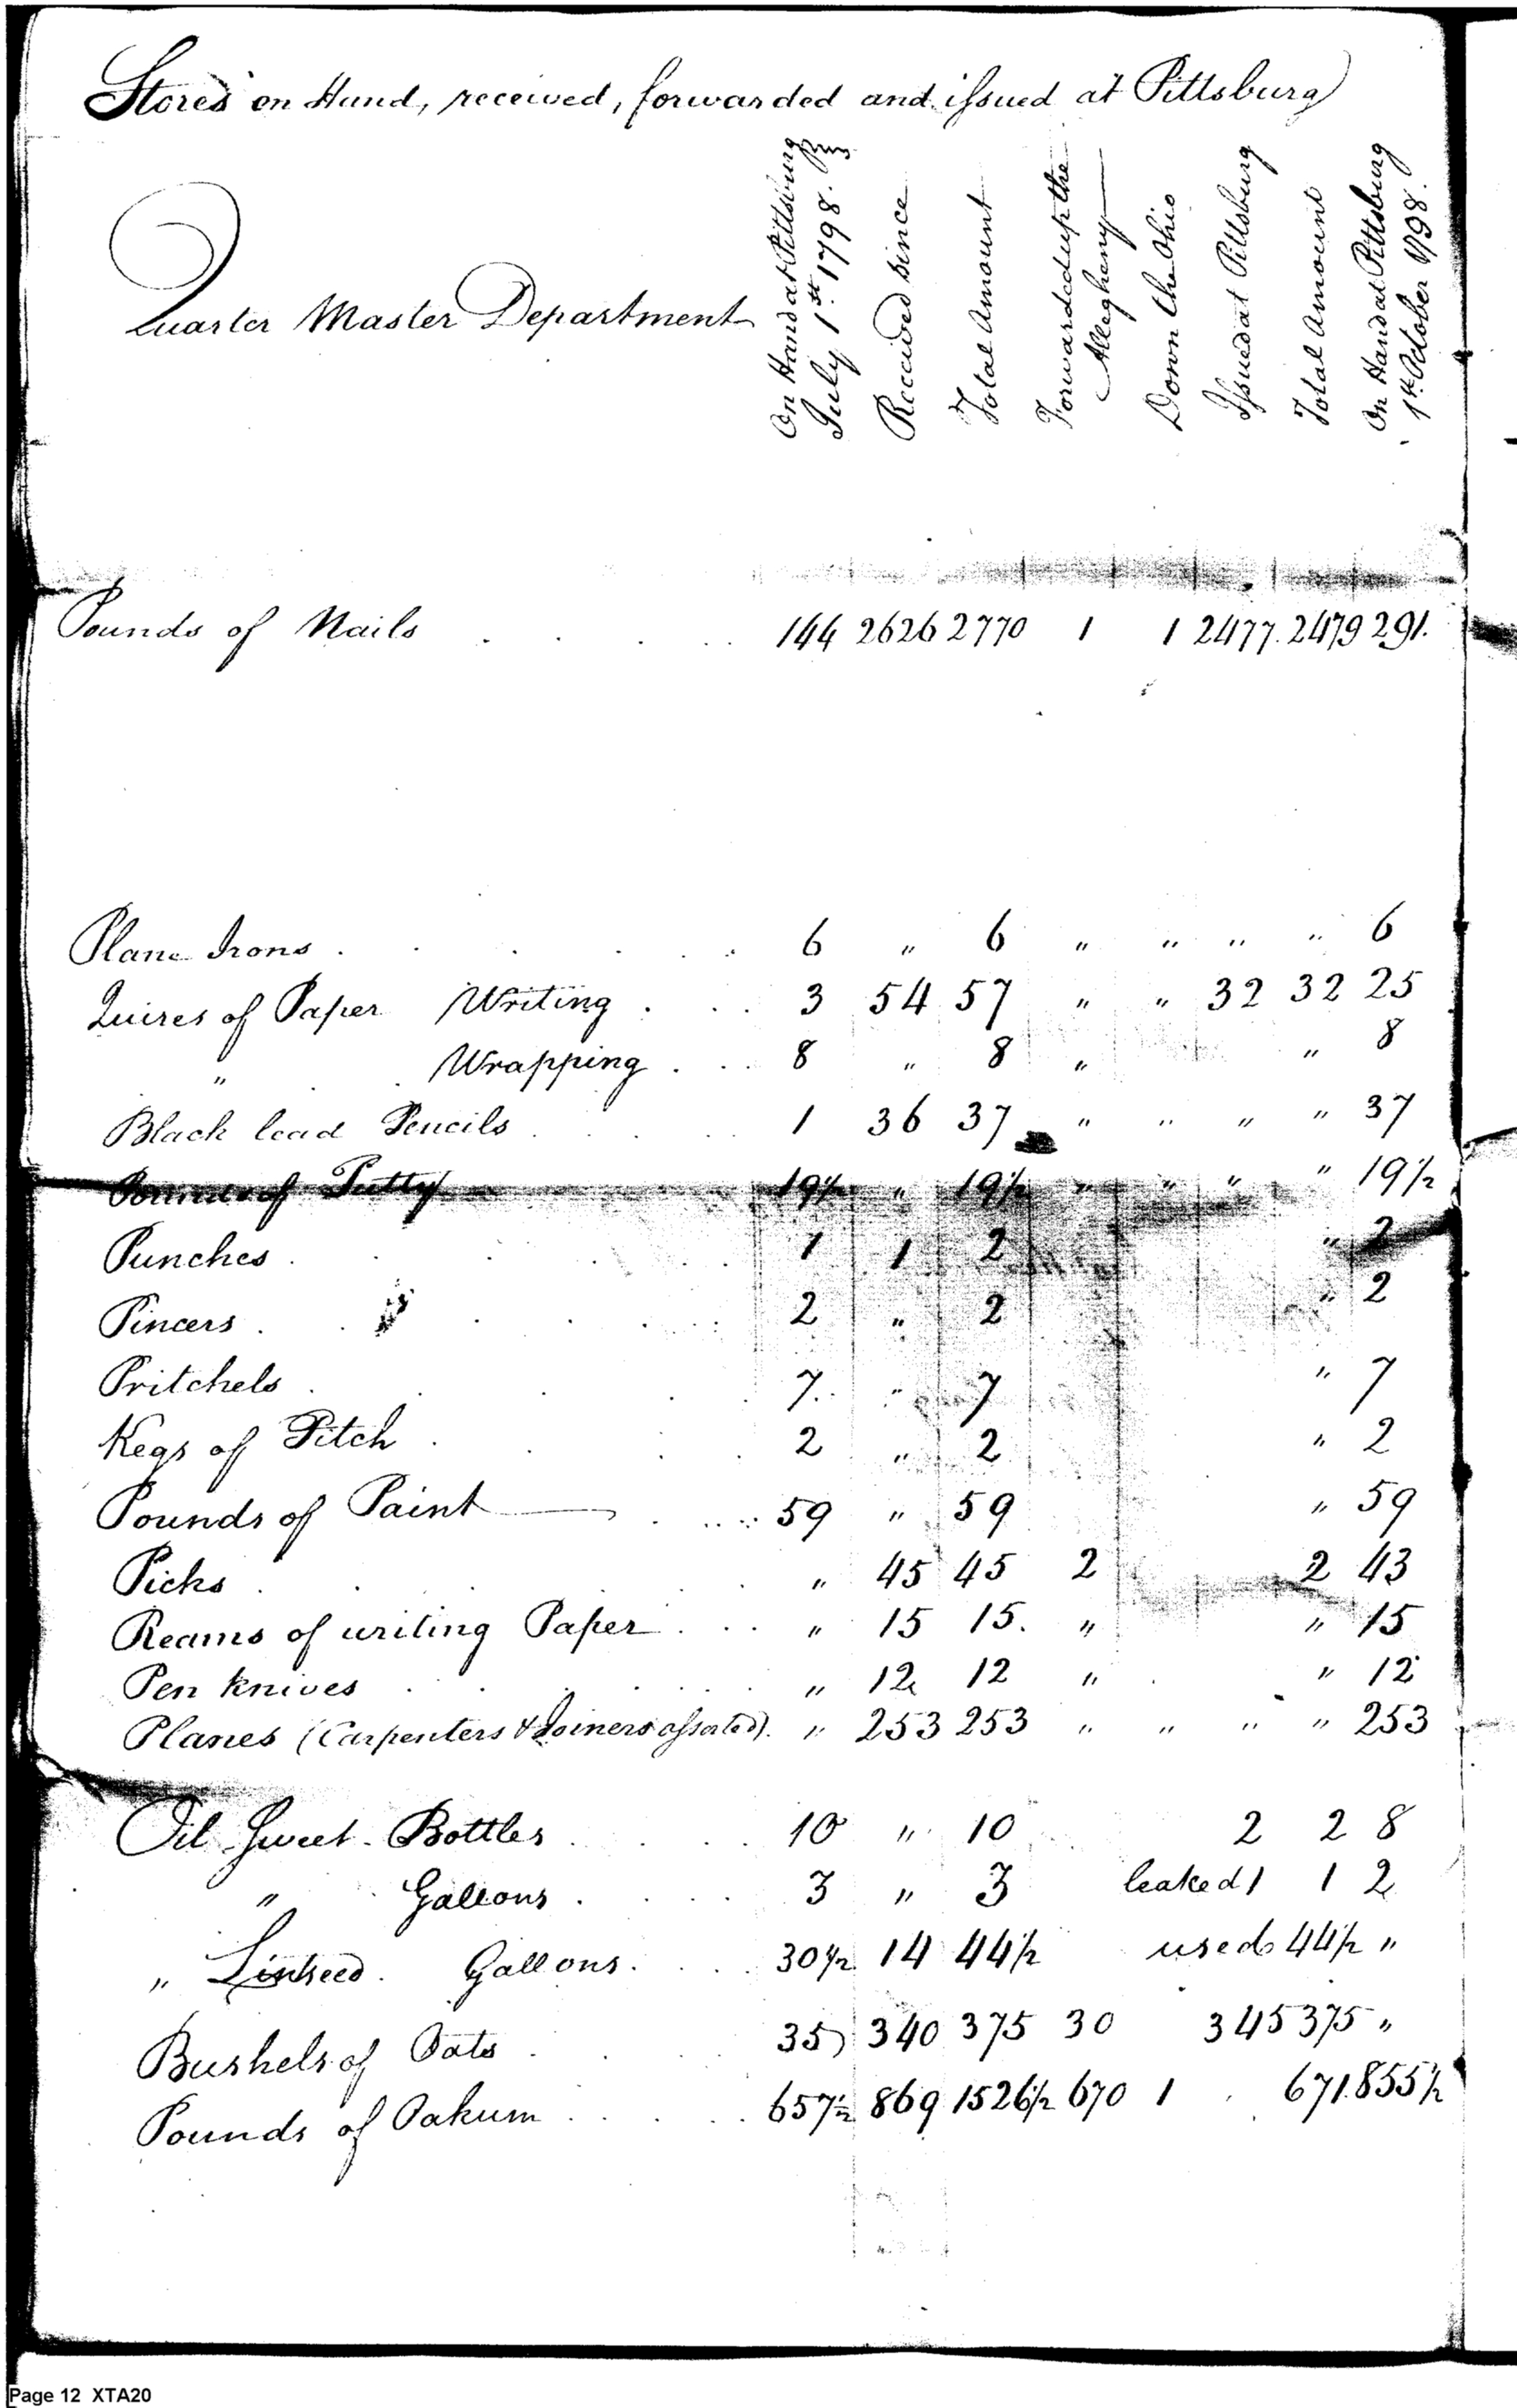 Stores on Hand, received, forwarded and issued at Pittsburg
Quarter Master Department
On Hand at Pittsburg
July 1st. 1798.
Received since
Total Amount
Forwarded up the
Allegheny
Down the Ohio
Issued at Pittsburg
Total Amount
On Hand at Pittsburg
1st. October 1798.
Pounds of Nails . . . . . 144 2626 2770 1 1 2477. 2479 291.
Plane Irons . . . . . . 6 " 6 " " " " 6
Quires of Paper Writing . . . 3 54 57 " " 32 32 25
" Wrapping . . . 8 " 8 " " 8
Black lead Pencils . . . . . 1 36 37 " " " " 37
Pounds of Putty 19½ " 19½ " " " " 19½
Punches . . . . . 1 1 2 " 2
Pincers . . . . . 2 " 2 " 2
Pritchels . . . . 7. " 7 " 7
Kegs of Pitch . . . . 2 " 2 " 2
Pounds of Paint — . . . 59 " 59 " 59
Picks . . . . . " 45 45 2 2 43
Reams of writing Paper . . . " 15 15. " " 15
Pen knives . . . . . " 12 12 " " 12
Planes (Carpenters & Joiners assorted). " 253 253 " " " " 253
Oil Sweet - Bottles . . . . 10 " 10 2 2 8
" Gallons . . . . 3 " 3 leaked 1 1 2
" Linseed . Gallons . . . 30½ 14 44½ used 44½ "
Bushels of Oats . . . . 35 340 375 30 345 375 "
Pounds of Oakum . . . . . 657½ 869 1526½ 670 1 671. 855½
Page 12 XTA20